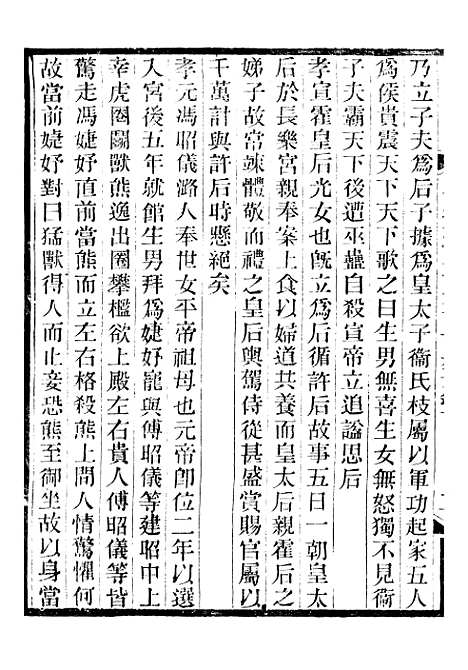 乃立子夫爲后子據爲皇太子衞氏枝屬以軍功起家五人
爲侯貴震天下天下歌之曰生男無喜生女無怒獨不見衞
子夫霸天下後遭巫蠱自殺宣帝立追謚思后
孝宣霍皇后光女也旣立爲后循許后故事五日一朝皇太
后於長樂宮親奉案上食以婦道共養而皇太后親霍后之
娣子故常竦體敬而禮之皇后輿駕侍從甚盛賞賜官屬以
千萬計與許后時懸絕矣
孝元馮昭儀潞人奉世女平帝祖母也元帝卽位二年以選
入宮後五年就館生男拜爲婕妤寵與傅昭儀等建昭中上
幸虎圈鬭獸熊逸出圈攀檻欲上殿左右貴人傅昭儀等皆
驚走馮婕妤直前當熊而立左右格殺熊上問人情驚懼何
故當前婕妤對曰猛獸得人而止妾恐熊至御坐故以身當